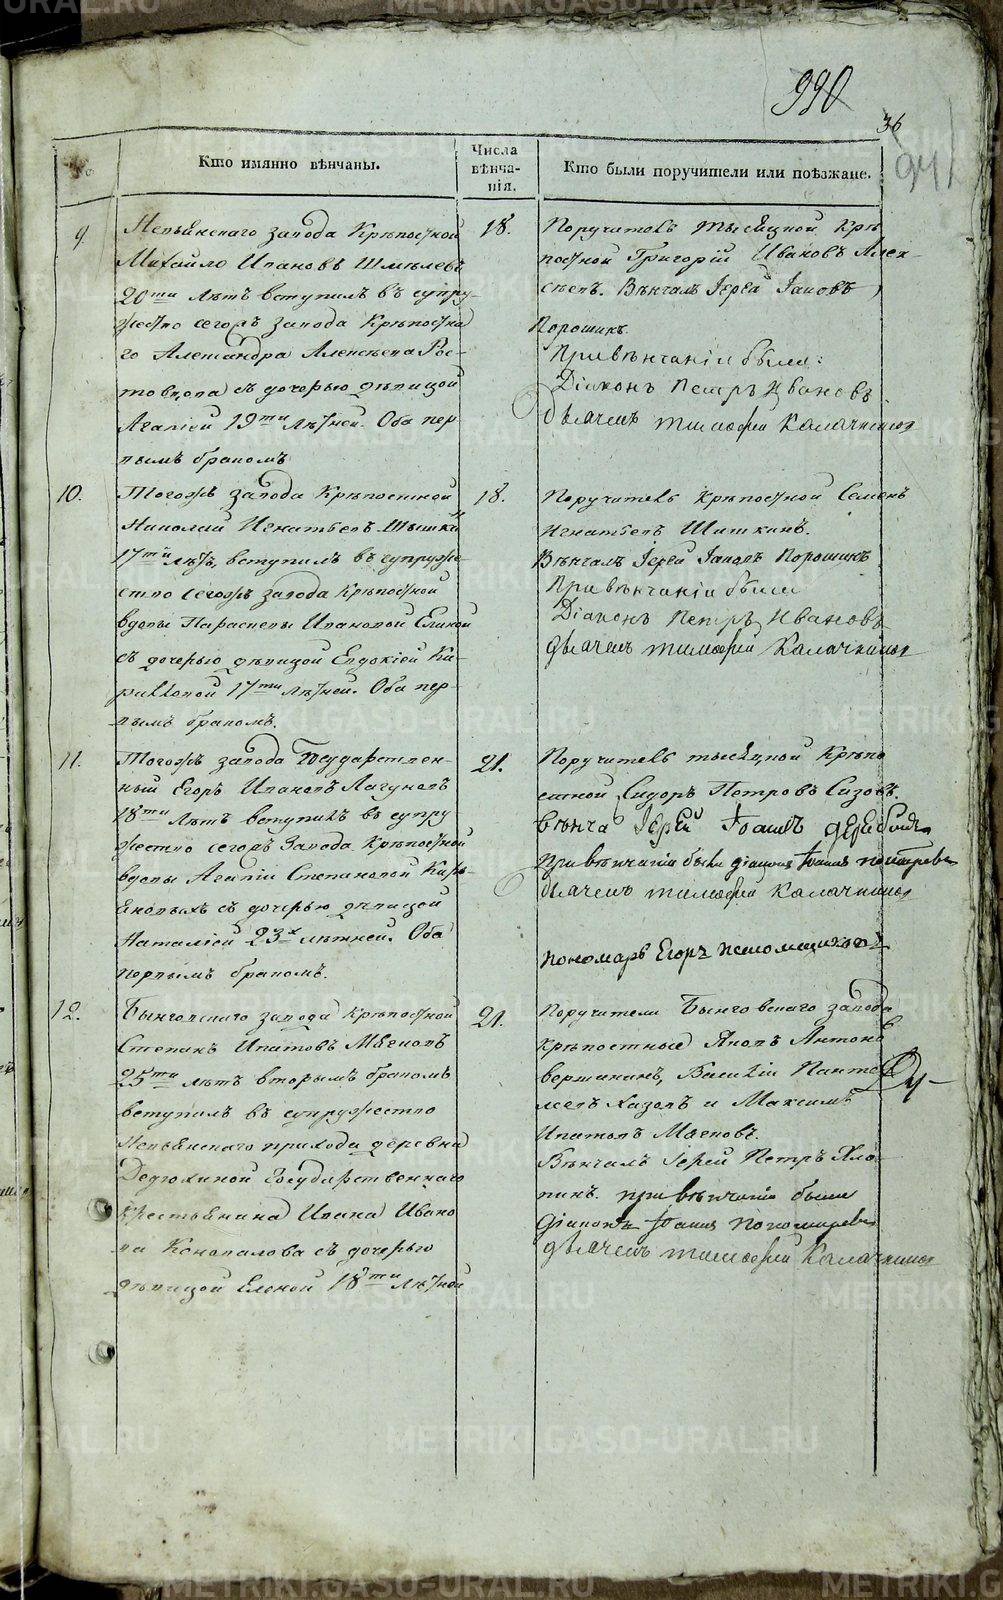 990
36
941
№
Кто имянно вѣнчаны.
Числа вѣнча-нія.
Кто были поручители или поѣзжане.
9.
Невьянскаго завода Крѣпостной
Михайло Ивановъ Шмѣлевъ
20ти лѣтъ вступилъ въ супру-
жество сегожъ завода Крѣпостна
го Алексѣева Рос-
товцова съ дочерью дѣвицой
Агапіей 19ти лѣтней. Оба пер
вымъ бракомъ
18.
Поручитель тысяцкой Крѣ
постной Григорій Ивановъ Алек-
сѣевъ. Вѣнчалъ Іерей Іаковъ
Порошинъ
При вѣнчаніи были:
Діаконъ Петръ Ивановъ
дьячекъ тимофей Калачниковъ
10.
Тогожъ завода Крѣпостной
Николай Игнатьевъ Шишкинъ
17ти лѣтъ, вступилъ въ супруже-
ство сегожъ завода Крѣпостной
вдовы Параскевы Ивановой
съ дочерью дѣвицой Евдокіей Ки-
рилловой 17ти лѣтней. Оба пер-
вымъ бракомъ.
18.
Поручитель крѣпостной Семенъ
Игнатьевъ Шишкинъ.
Вѣнчалъ Іерей Іаковъ Порошинъ
При вѣнчаніи были
Діаконъ Петръ Ивановъ
дьячекъ тимофей Калачниковъ
11.
Тогожъ завода Государствен-
ный Егоръ Ивановъ Лагуновъ
18ти лѣтъ вступилъ въ супру
жество сегожъ Завода Крѣпостной
вдовы Агапіи Степановой
съ дочерью дѣвицой
Наталіей 23х лѣтней. Оба
первымъ бракомъ.
21.
Поручитель тысяцкой Крѣпо
стной Сидоръ Петровъ Сизовъ.
вѣнча Іерей Іоаннъ
При вѣнчаніи были діаконъ Іоаннъ
дьячекъ тимофей Калачниковъ
пономарь Егоръ
12.
Быньговскаго завода крѣпостной
Степанъ Ипатовъ Мягковъ
25ти лѣтъ вторымъ бракомъ
вступилъ въ супружество
Невьянскаго прихода деревни
Федюкиной Государственнаго
крестьянина Ивана Ивано
ва Коновалова съ дочерью
дѣвицой Еленой 18ти лѣтной
21.
Поручители Быньговскаго завода
крѣпостные Яковъ Антоновъ
вершининъ, Василій Панте
леевъ и Максимъ
Ипатовъ Мягковъ.
Вѣнчалъ Іерей Петръ Хло-
пинъ. при вѣнчаніи были
діаконъ Іоаннъ Пономаревъ
дьячекъ тимофей Калачниковъ
METRIKI.GASO-URAL.RU